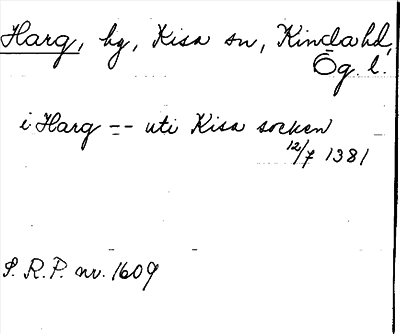 Harg, hg, Kisa sn, Kinda hd,
Ög. l.
i Harg -- uti Kisa socken
12/7 1381
S. R. P. nr. 1609